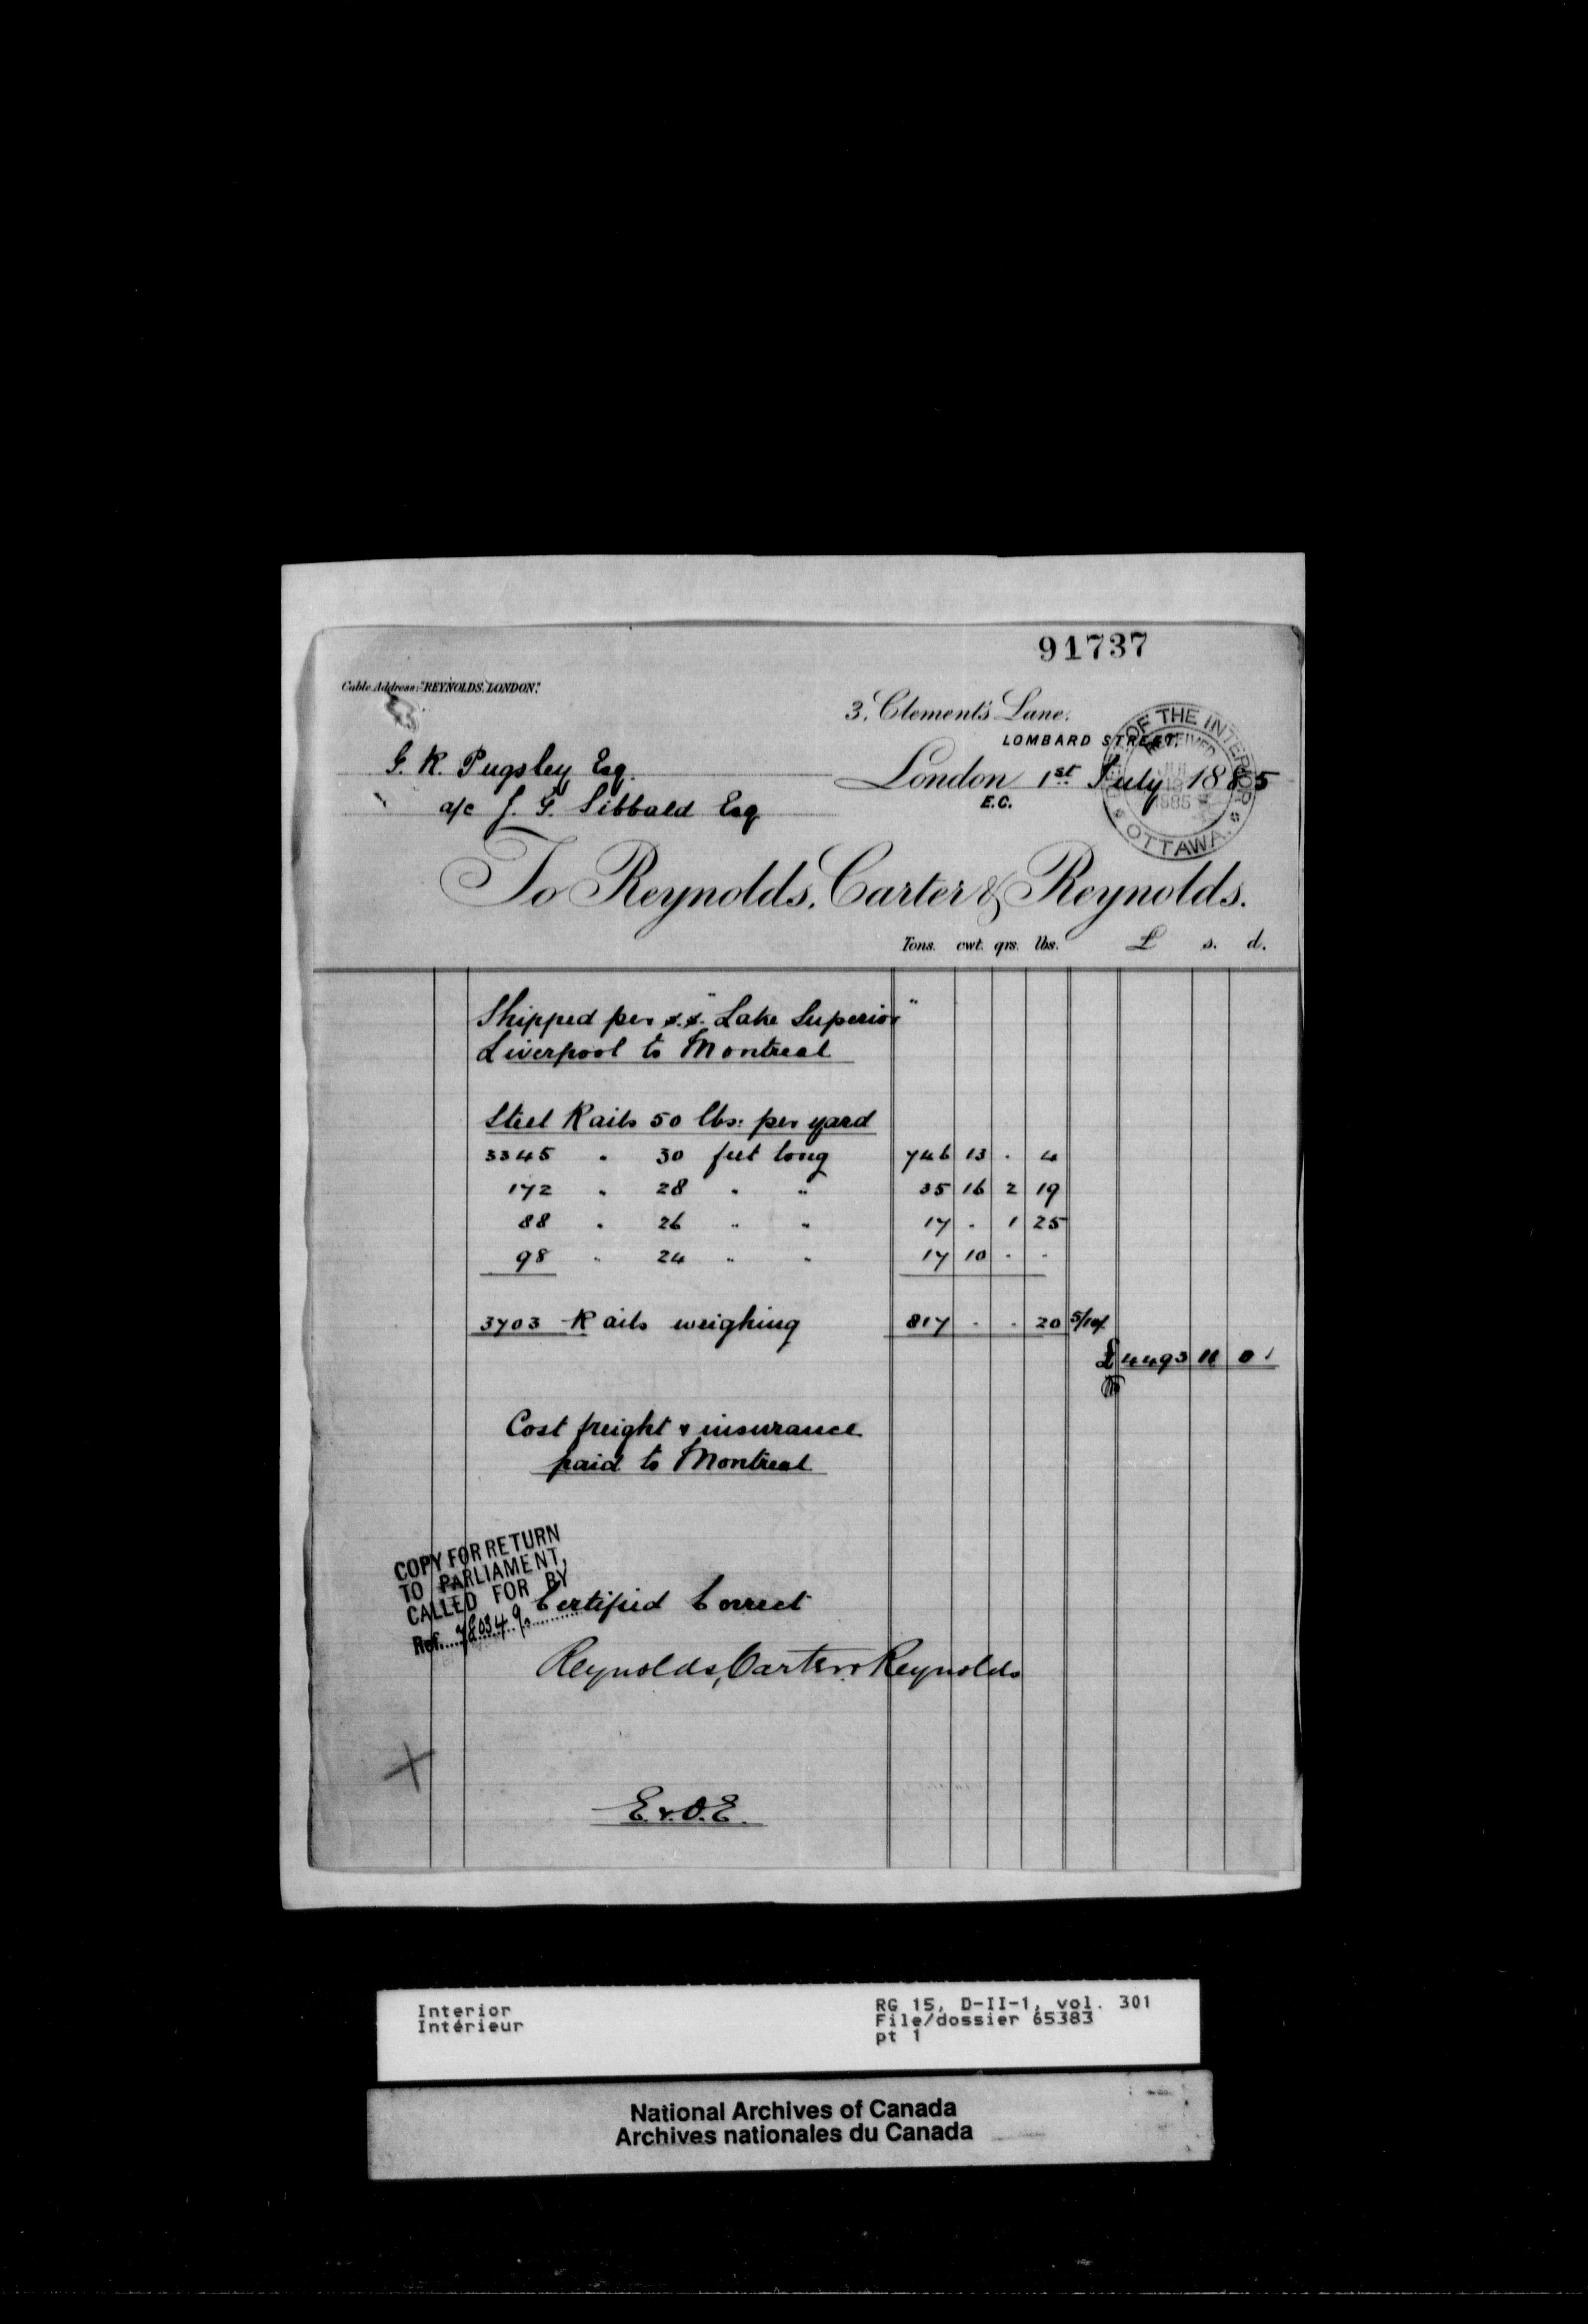 91737
Cable Address: "REYNOLDS, LONDON."
3, Clement's Lane,
LOMBARD STREET,
G. R. Pugsley Esq.
London 1st July 1885
E.C.
a/c J. G. Sibbald Esq
OF THE INTERIOR
RECEIVED
1885
OTTAWA.
To Reynolds, Carter & Reynolds.
Tons. cwt. qrs. lbs. £ s. d.
Shipped per s.s. "Lake Superior"
Liverpool to Montreal
Steel Rails 50 lbs: per yard
3345 " 30 feet long 746 13 . 4
172 " 28 " " 35 16 2 19
88 " 26 " " 17 . 1 25
98 " 24 " " 17 10 . .
3703 Rails weighing 817 . . 20
£4493 11 0
Cost freight & insurance
paid to Montreal
COPY FOR RETURN
TO PARLIAMENT,
CALLED FOR BY
Ref. 78034 9
Certified Correct
Reynolds, Carter & Reynolds
E. & O. E.
Interior
Intérieur
RG 15, D-II-1, vol. 301
File/dossier 65383
pt 1
National Archives of Canada
Archives nationales du Canada